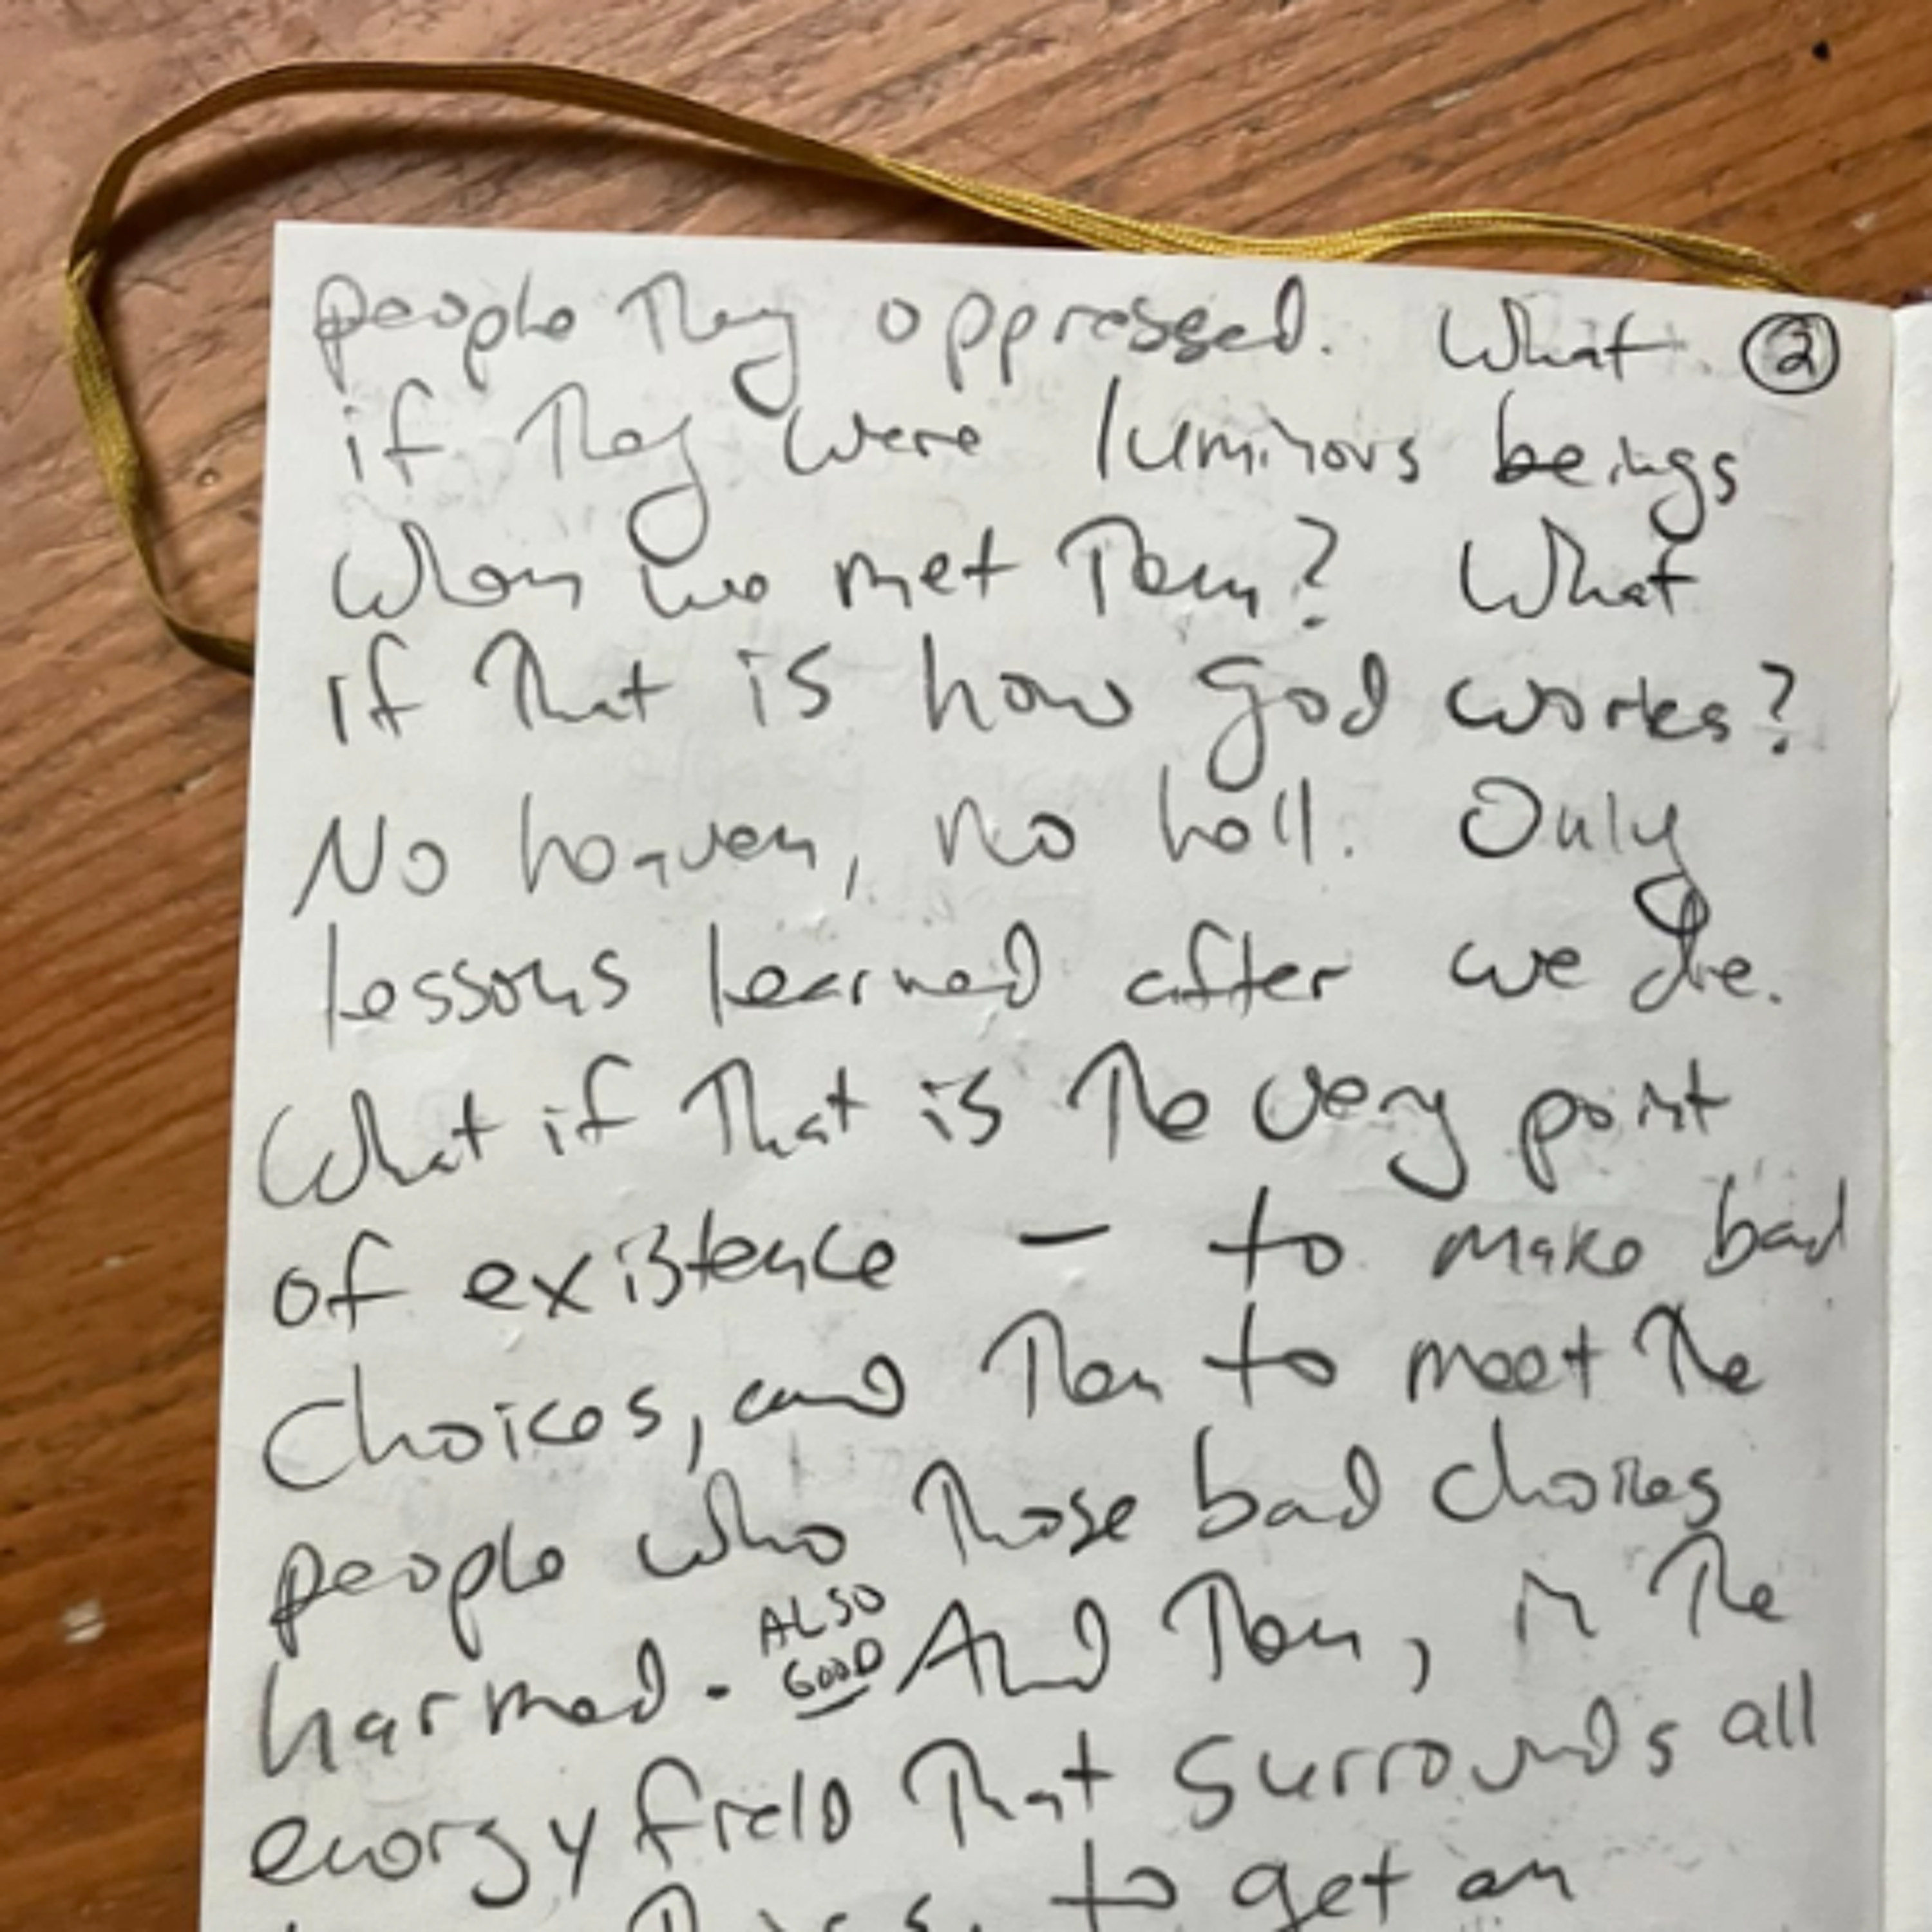 people they oppressed. What ②
if they were luminous beings
when we met them? What
if that is how god works?
No heaven, no hell. Only
lessons learned after we die.
What if that is the very point
of existence — to make bad
choices, and then to meet the
people who those bad choices
harmed. ALSO GOOD And then, in the
energy field that surrounds all
to get an